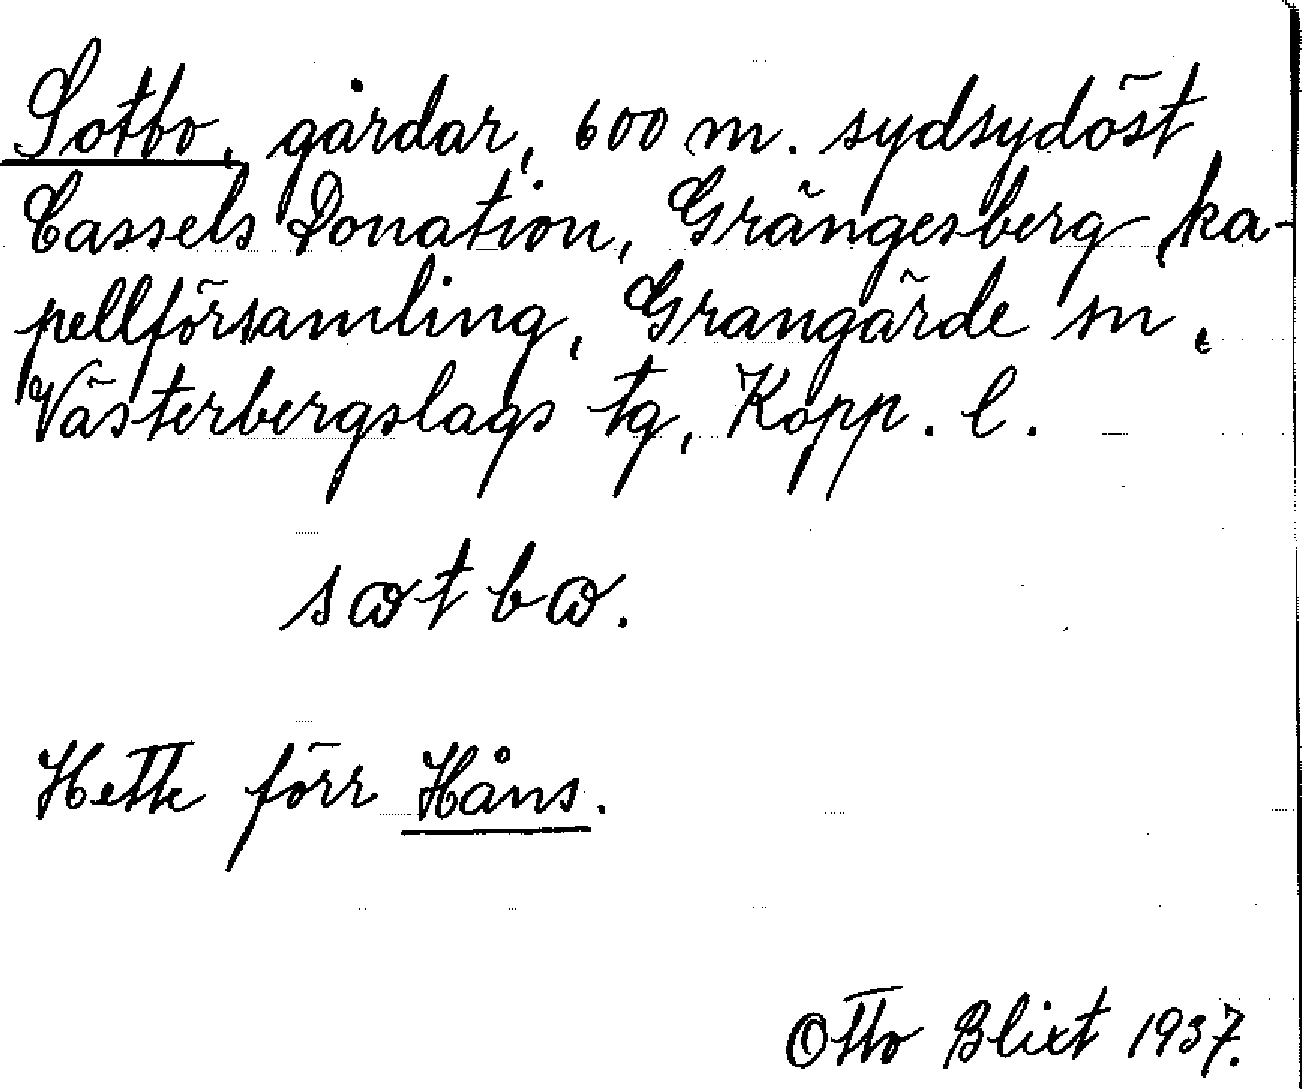 Sotbo, gårdar, 600 m. sydsydöst
Cassels Donation, Grängesberg ka-
pellförsamling, Grangärde sn,
Västerbergslags tg, Kopp. l.
sωtbω.
Hette förr Håns.
Otto Blixt 1937.